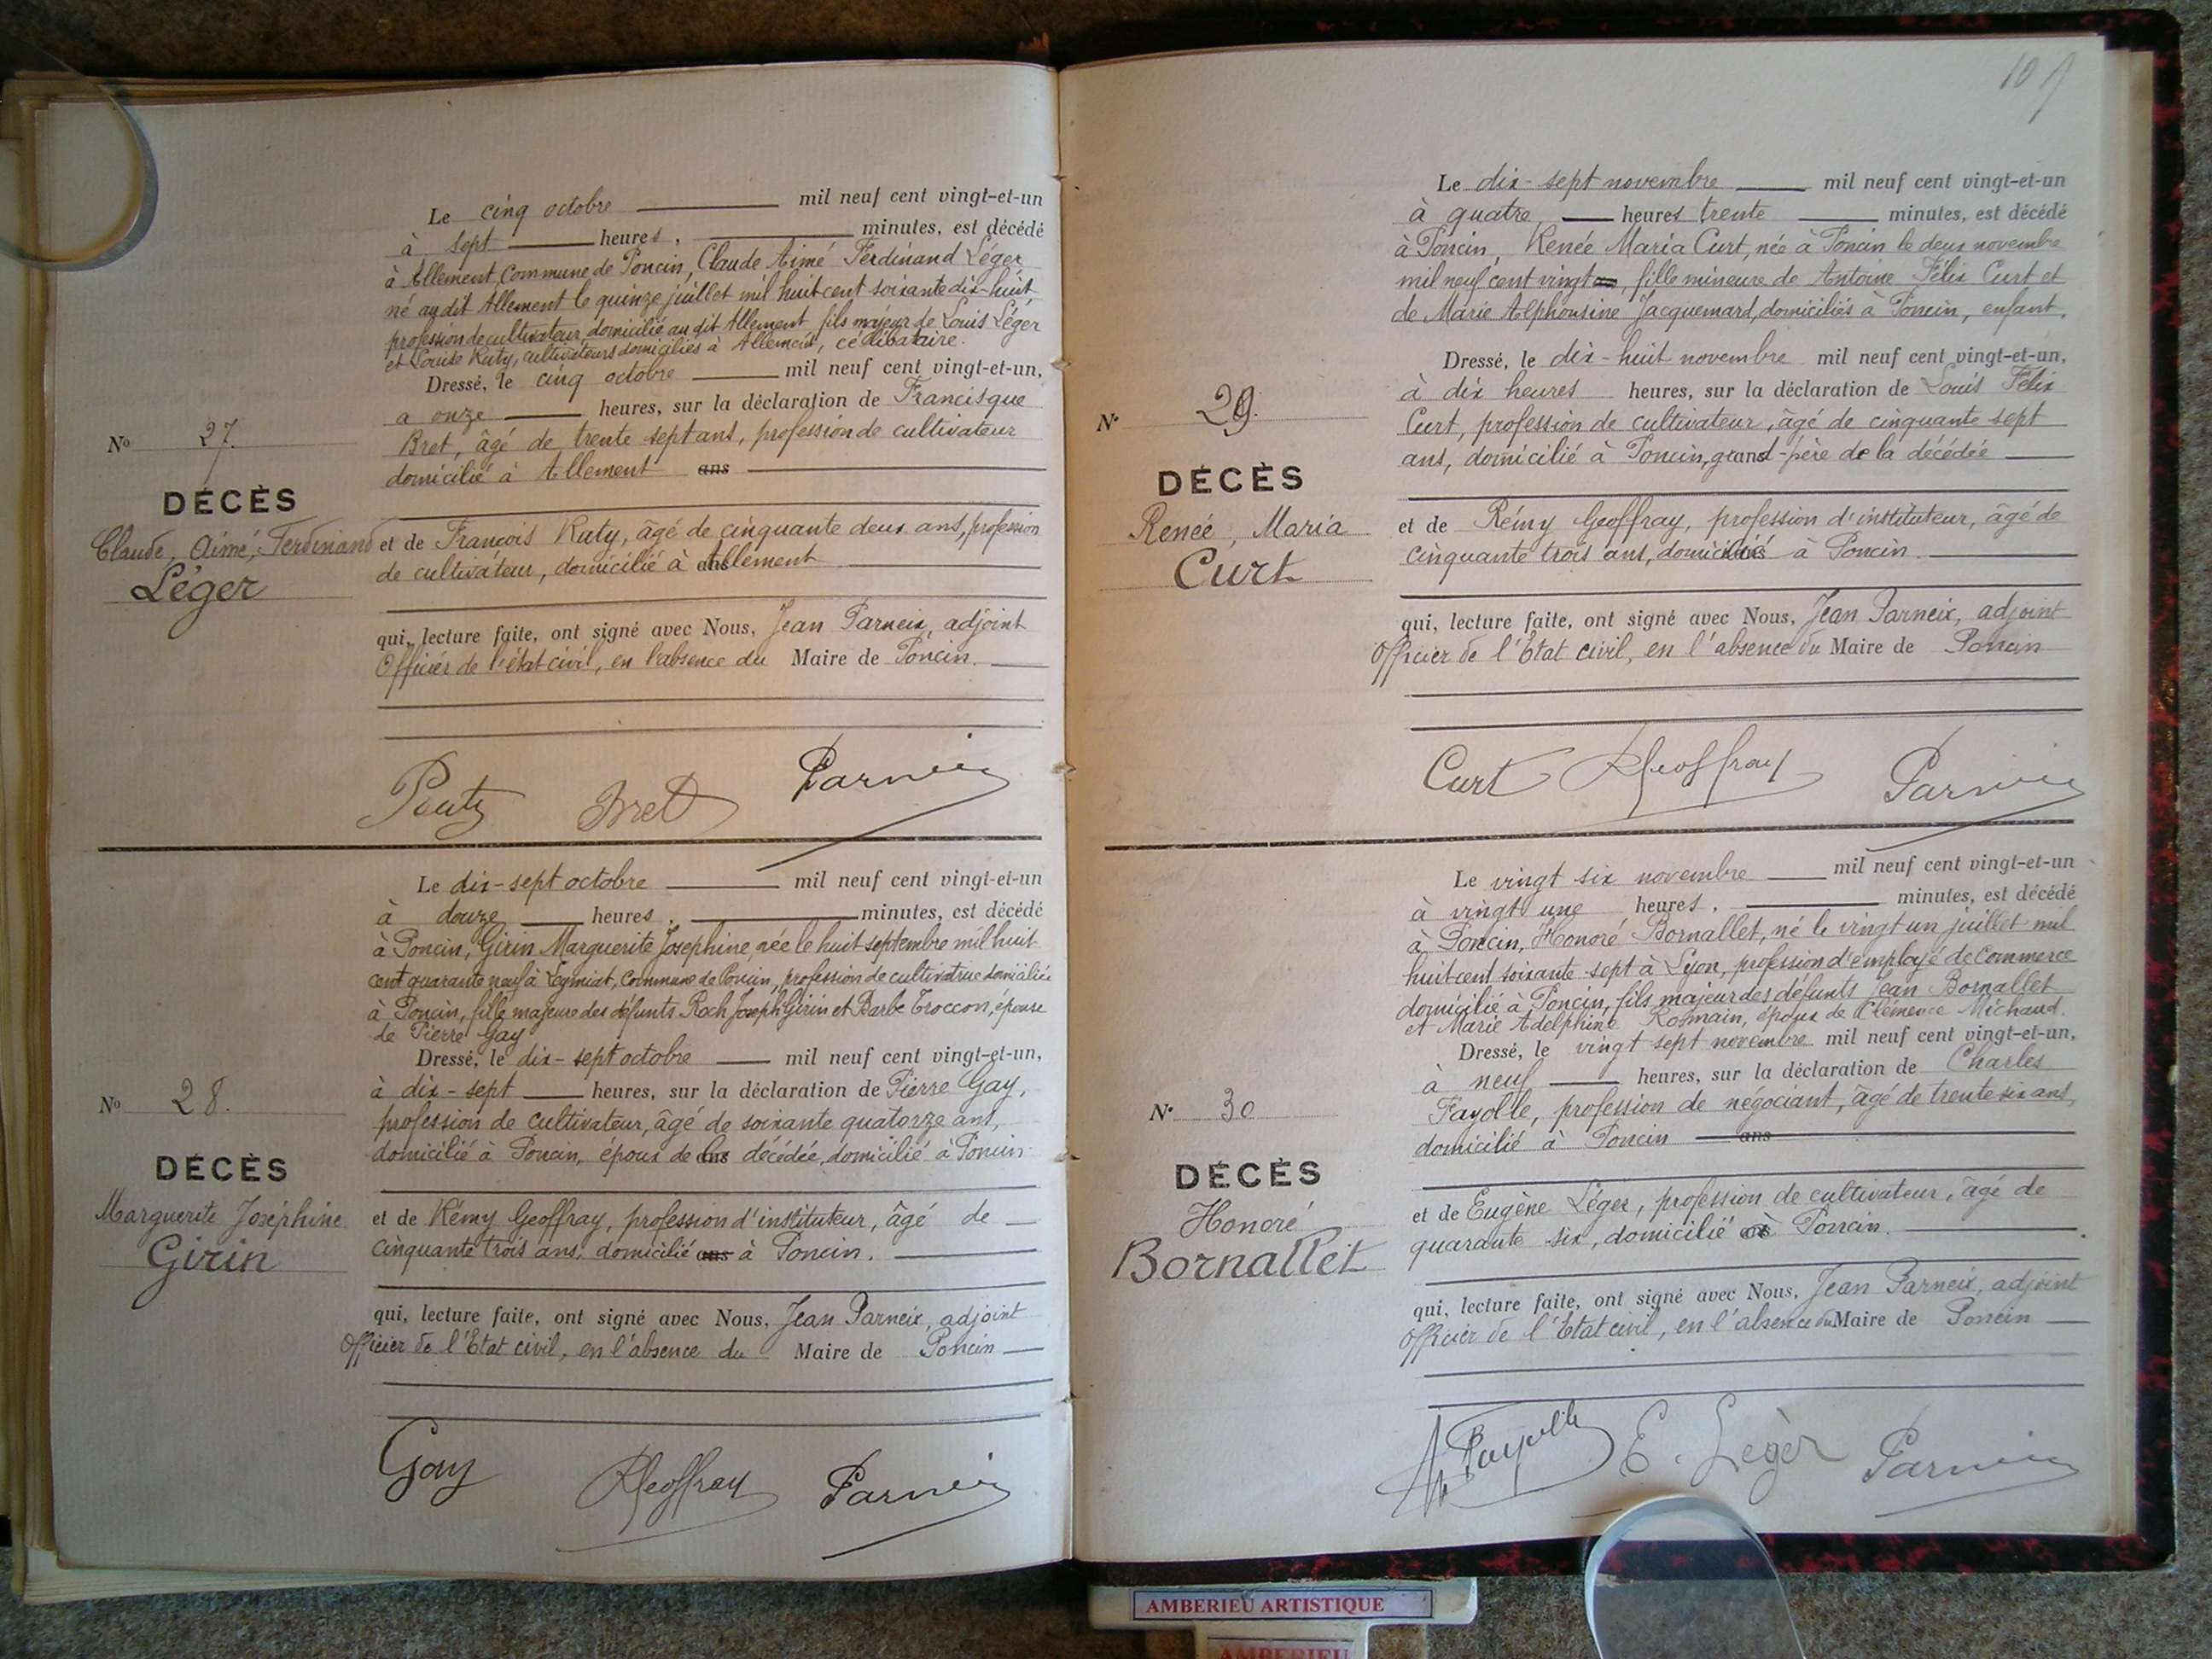 Le cinq octobre mil neuf cent vingt-et-un
à sept heures, minutes, est décédé
à Allement Commune de Poncin, Claude Aimé Ferdinand Léger
né au dit Allement le quinze juillet mil huit cent soixante dix-huit
profession de cultivateur, domicilié au dit Allement fils majeur de Louis Léger
et Louise Ruty, cultivateurs domiciliés à Allement, célibataire.
Dressé, le cinq octobre mil neuf cent vingt-et-un,
à onze heures, sur la déclaration de Francisque
Bret, âgé de trente sept ans, profession de cultivateur
domicilié à Allement ans
No 27.
DÉCÈS
Claude, Aimé, Ferdinand
Léger
et de François Ruty, âgé de cinquante deux ans, profession
de cultivateur, domicilié à Allement
qui, lecture faite, ont signé avec Nous, Jean Parneix, adjoint
Officier de l'état civil, en l'absence du Maire de Poncin.
Bret Parneix
Le dix-sept octobre mil neuf cent vingt-et-un
à douze heures, minutes, est décédé
à Poncin, Girin Marguerite Joséphine, née le huit septembre mil huit
cent quarante neuf à Leymiat, Commune de Poncin, profession de cultivatrice domiciliée
à Poncin, fille majeure des défunts Roch Joseph Girin et Barbe Troccon, épouse
de Pierre Gay
Dressé, le dix-sept octobre mil neuf cent vingt-et-un,
à dix-sept heures, sur la déclaration de Pierre Gay,
profession de cultivateur, âgé de soixante quatorze ans,
domicilié à Poncin, époux de la décédée, domicilié à Poncin
No 28.
DÉCÈS
Marguerite Joséphine
Girin
et de Rémy Geoffray, profession d'instituteur, âgé de
cinquante trois ans, domicilié ans à Poncin.
qui, lecture faite, ont signé avec Nous, Jean Parneix, adjoint
Officier de l'Etat civil, en l'absence du Maire de Poncin
Gay RGeoffray Parneix
Le dix-sept novembre mil neuf cent vingt-et-un
à quatre heures trente minutes, est décédé
à Poncin, Renée Maria Curt, née à Poncin le deux novembre
mil neuf cent vingt, fille mineure de Antoine Félix Curt et
de Marie Alphonsine Jacquemard, domiciliés à Poncin, enfant.
Dressé, le dix-huit novembre mil neuf cent vingt-et-un,
à dix heures heures, sur la déclaration de Louis Félix
Curt, profession de cultivateur, âgé de cinquante sept
ans, domicilié à Poncin, grand-père de la décédée
No 29.
DÉCÈS
Renée, Maria
Curt
et de Rémy Geoffray, profession d'instituteur, âgé de
cinquante trois ans, domicilié à Poncin.
qui, lecture faite, ont signé avec Nous, Jean Parneix, adjoint
Officier de l'Etat civil, en l'absence du Maire de Poncin
Curt RGeoffray Parneix
Le vingt six novembre mil neuf cent vingt-et-un
à vingt une heures, minutes, est décédé
à Poncin, Honoré Bornallet, né le vingt un juillet mil
huit cent soixante-sept à Lyon, profession d'employé de Commerce
domicilié à Poncin, fils majeur des défunts Jean Bornallet
et Marie Adelphine Romain, époux de Clémence Michaud.
Dressé, le vingt sept novembre mil neuf cent vingt-et-un,
à neuf heures, sur la déclaration de Charles
Fayolle, profession de négociant, âgé de trente six ans,
domicilié à Poncin ans
No 30
DÉCÈS
Honoré
Bornallet
et de Eugène Léger, profession de cultivateur, âgé de
quarante six, domicilié à Poncin.
qui, lecture faite, ont signé avec Nous, Jean Parneix, adjoint
Officier de l'Etat civil, en l'absence du Maire de Poncin
Fayolle E. Léger Parneix
AMBERIEU ARTISTIQUE
AMBERIEU